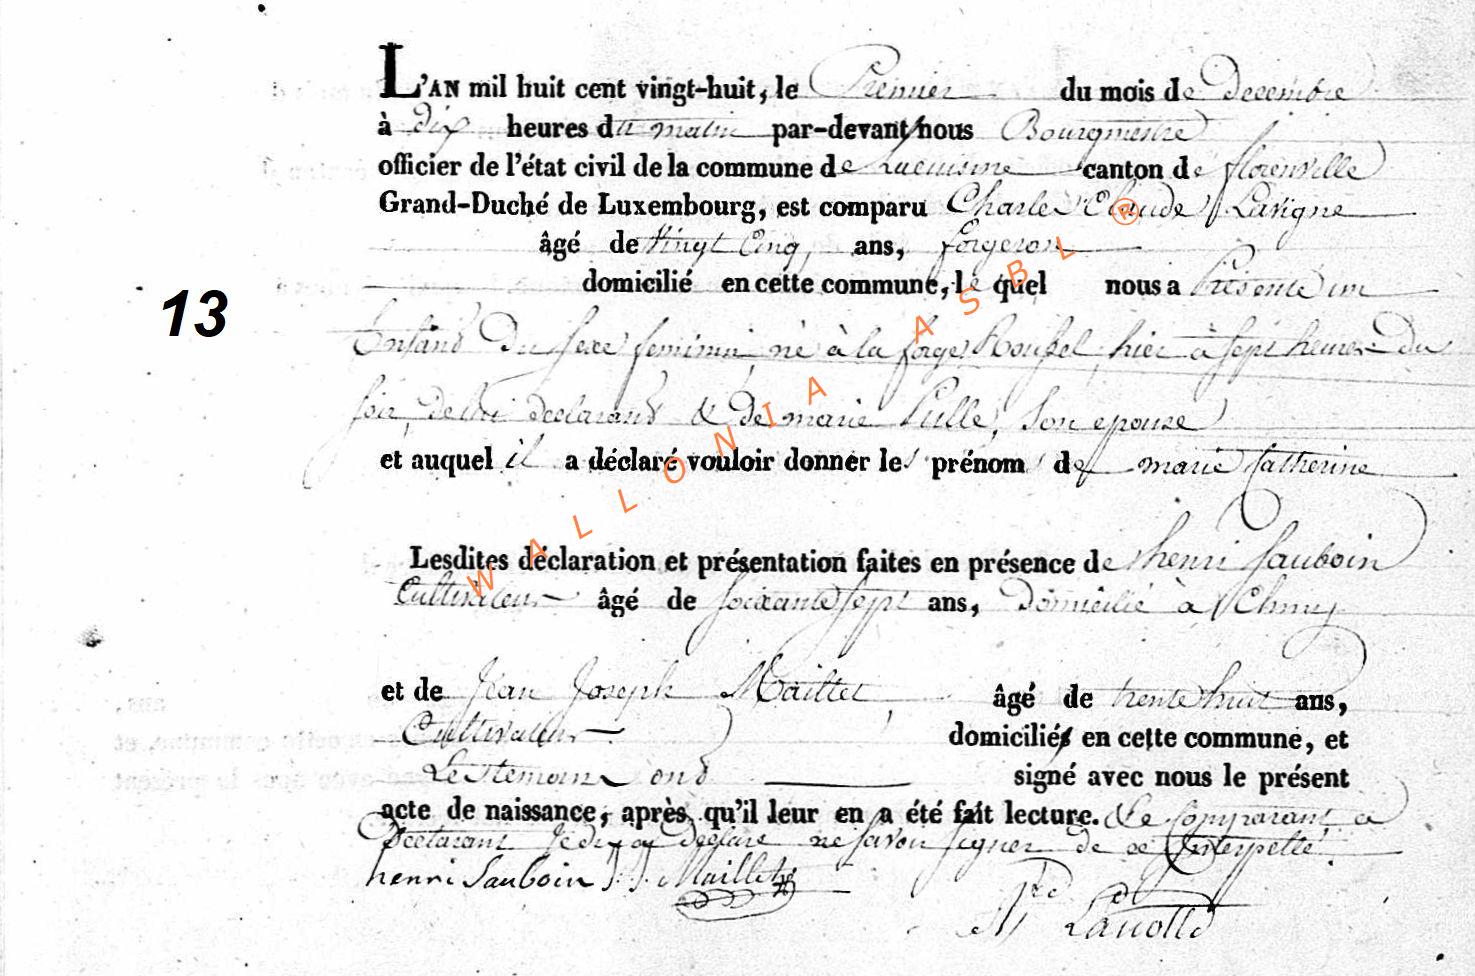 L'AN mil huit cent vingt-huit, le Premier du mois de decembre
à dix heures du matin par-devant nous Bourgmestre
officier de l'état civil de la commune de Lacuisine canton de florenville
Grand-Duché de Luxembourg, est comparu Charles Claude Lavigne
âgé de vingt Cinq, ans, forgeron
domicilié en cette commune, le quel nous a Présenté un
13
Enfand Du sexe feminin, né à la forge Roussel, hier à sept heures Du
soir, de lui declarand & De marie Pille, Son epouse
et auquel il a déclaré vouloir donner les prénoms de marie Catherine
Lesdites déclaration et présentation faites en présence de henri Sauboin
Cultivateur âgé de soixante sept ans, Domicilié à Chiny
et de Jean Joseph Maillet, âgé de trente huit ans,
Cultivateur domiciliés en cette commune, et
Les temoins ond signé avec nous le présent
acte de naissance, après qu'il leur en a été fait lecture. & Le Comparant a
Declarant ne savoir signer de ce Interpellé.
henri Sauboin J. J. Maillet
WALLONIA ASBL ®